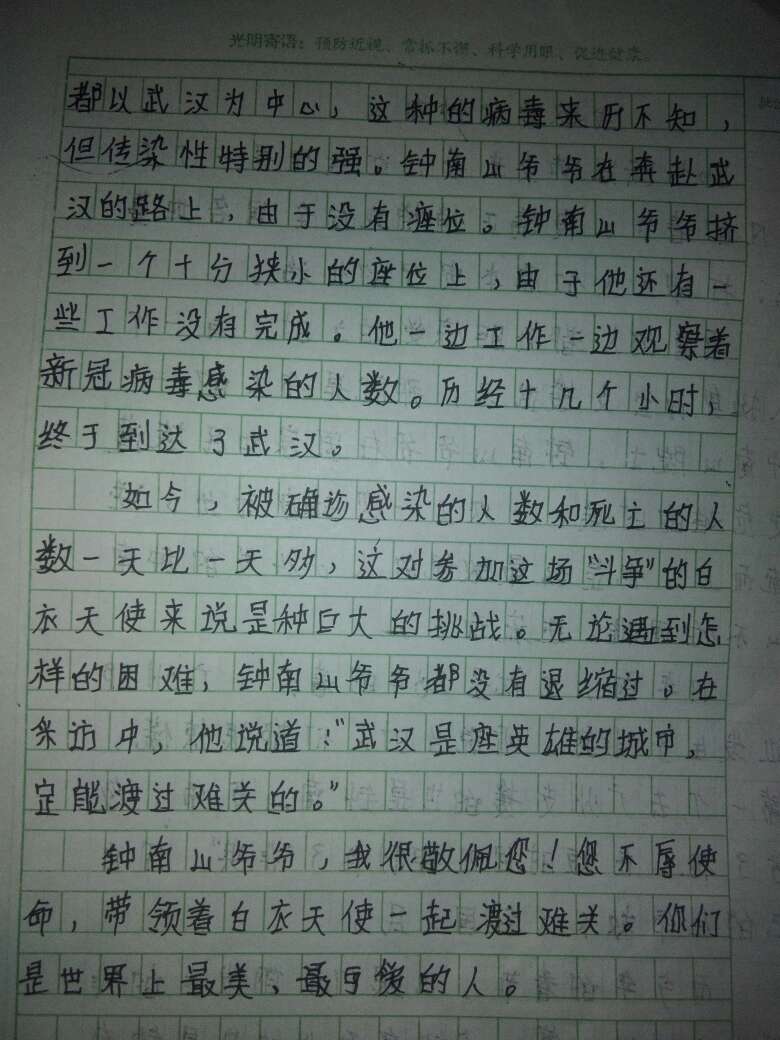 光明寄语：预防近视、常抓不懈、科学用眼、促进健康。
都以武汉为中心，这种的病毒来历不知，
但传染性特别的强。钟南山爷爷在奔赴武
汉的路上，由于没有座位。钟南山爷爷挤
到一个十分狭小的座位上，由于他还有一
些工作没有完成。他一边工作一边观察着
新冠病毒感染的人数。历经十几个小时，
终于到达了武汉。
如今，被确诊感染的人数和死亡的人
数一天比一天多，这对参加这场“斗争”的白
衣天使来说是种巨大的挑战。无论遇到怎
样的困难，钟南山爷爷都没有退缩过。在
采访中，他说道：“武汉是座英雄的城市，
定能渡过难关的。”
钟南山爷爷，我很敬佩您！您不辱使
命，带领着白衣天使一起渡过难关。你们
是世界上最美、最可爱的人。